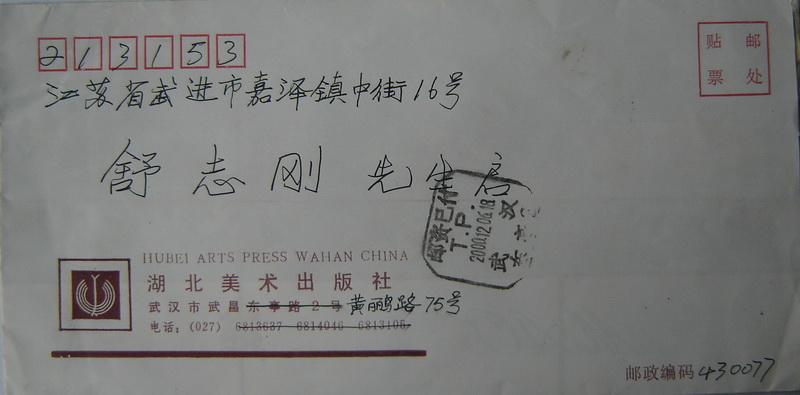 213153
贴邮
票处
江苏省武进市嘉泽镇中街16号
舒志刚 先生启
邮资已付
T.P.
2000.12.06.18
武汉
HUBEI ARTS PRESS WAHAN CHINA
湖北美术出版社
武汉市武昌东亭路2号黄鹂路75号
电话:(027) 6813637 6814046 6813105
邮政编码430077